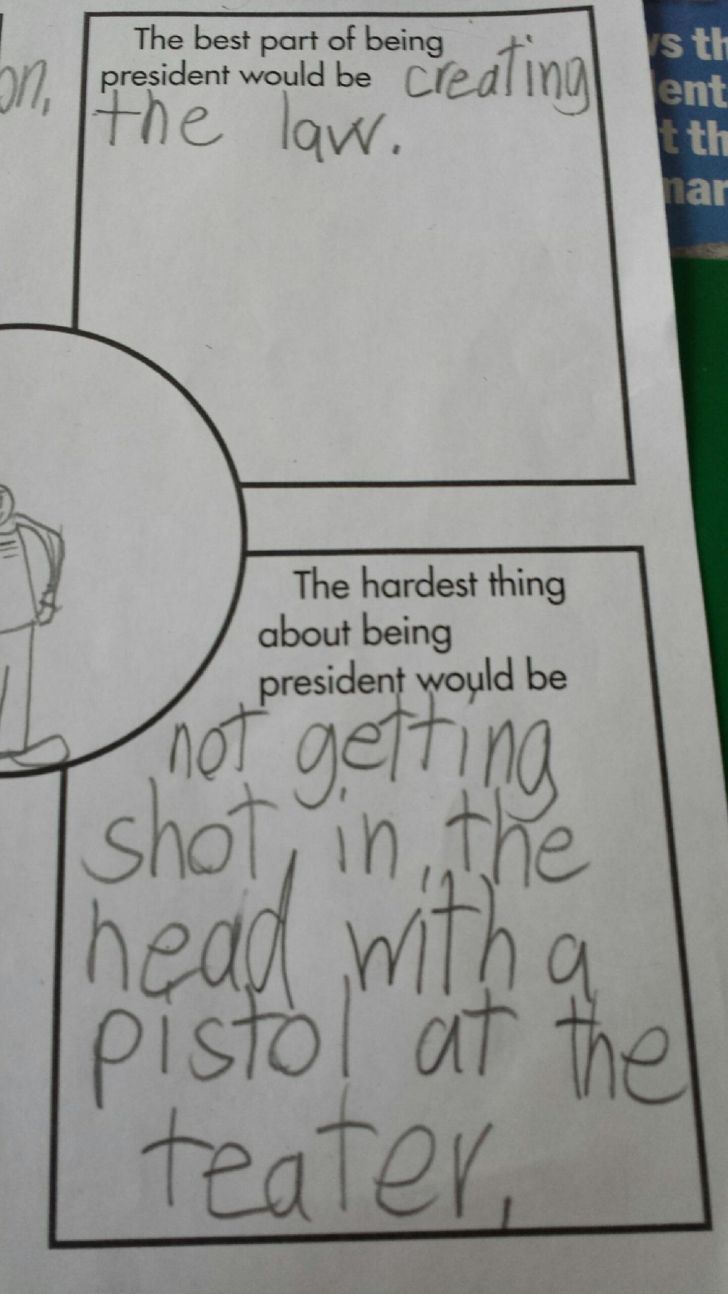 on,
The best part of being
president would be creating
the law.
The hardest thing
about being
president would be
not getting
shot, in the
head with a
pistol at the
teater,